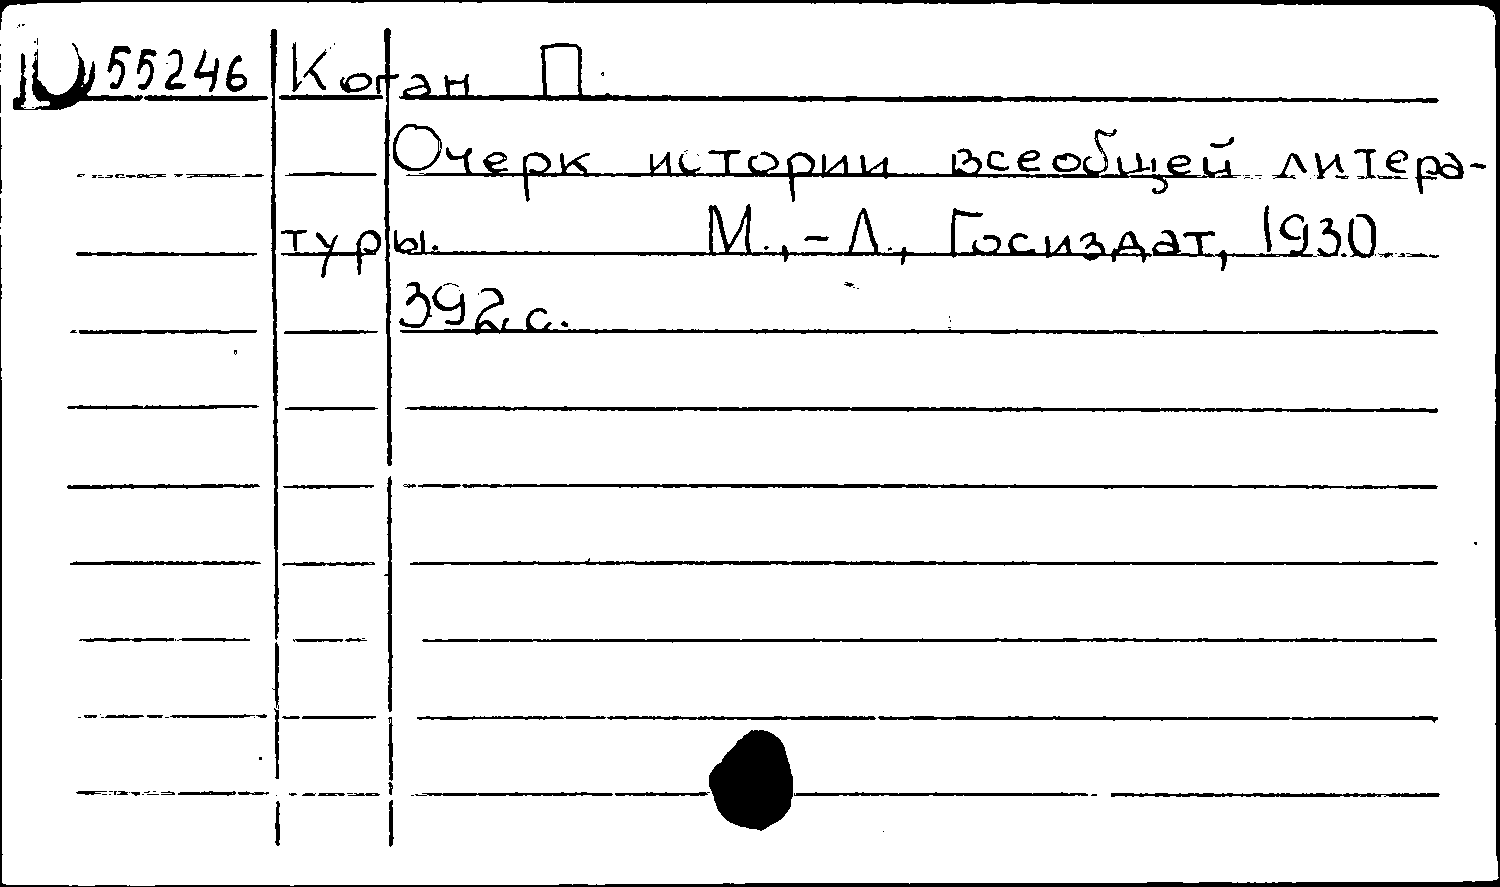 Ю 55246 Коган П.
Очерк истории всеобщей литера-
туры. М.,-Л., Госиздат, 1930
392 с.